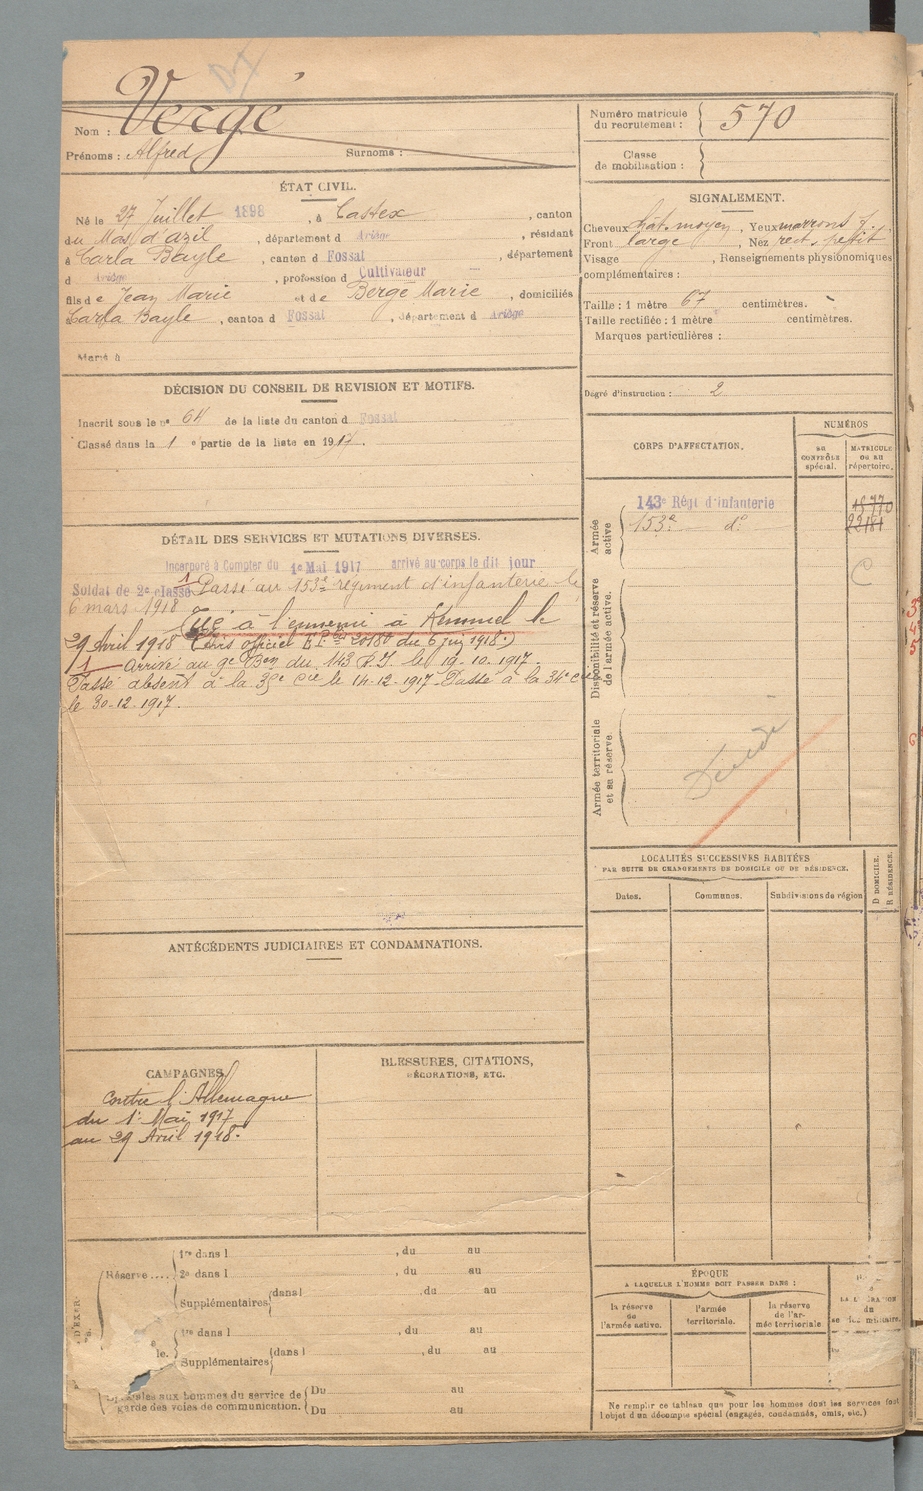 Vergé
Nom :
Prénoms : Alfred Surnoms :
Numéro matricule du recrutement : 570
Classe de mobilisation :
ÉTAT CIVIL.
Né le 27 Juillet 1898, à Castex, canton
du Mas d'azil, département d Ariège, résidant
à Carla Bayle, canton d Fossat, département
d Ariège, profession d Cultivateur
fils de Jean Marie et de Bergé Marie, domiciliés
Carla Bayle, canton d Fossat, département d Ariège
Marié à
SIGNALEMENT.
Cheveux chât. moyen, Yeux marrons f.
Front large, Nez rect. petit
Visage , Renseignements physionomiques
complémentaires :
Taille : 1 mètre 67 centimètres.
Taille rectifiée : 1 mètre centimètres.
Marques particulières :
Degré d'instruction : 2
DÉCISION DU CONSEIL DE REVISION ET MOTIFS.
Inscrit sous le nº 64 de la liste du canton d Fossat
Classé dans la 1 e partie de la liste en 1917.
CORPS D'AFFECTATION.
NUMÉROS
AU CONTRÔLE spécial.
MATRICULE OU AU répertoire.
Armée active
143e Régt d'infanterie
153e dº 22181
C
Disponibilité et réserve de l'armée active.
Armée territoriale et sa réserve
Décédé
DÉTAIL DES SERVICES ET MUTATIONS DIVERSES.
Incorporé à Compter du 1e Mai 1917 arrivé au corps le dit jour
Soldat de 2e classe 1 Passé au 153e régiment d'infanterie le
6 mars 1918
Tué à l'ennemi à Kemmel le
29 Avril 1918 (avis officiel du 6 juin 1918.)
1 Arrivé au 9e Bon du 143 R.I. le 19-10-1917.
Passé absent à la 35e Cie le 14-12-1917. Passé à la 34e Cie
le 30-12-1917.
LOCALITÉS SUCCESSIVES HABITÉES
PAR SUITE DE CHANGEMENTS DE DOMICILE OU DE RÉSIDENCE.
Dates. Communes. Subdivisions de région
D DOMICILE. R RÉSIDENCE.
ANTÉCÉDENTS JUDICIAIRES ET CONDAMNATIONS.
CAMPAGNES.
Contre l'Allemagne
du 1e Mai 1917
au 29 Avril 1918.
BLESSURES, CITATIONS,
DÉCORATIONS, ETC.
Réserve....
1re dans l , du au
2e dans l , du au
Supplémentaires dans l , du au
1re dans l , du au
Supplémentaires dans l , du au
aux hommes du service de garde des voies de communication.
Du au
Du au
ÉPOQUE
A LAQUELLE L'HOMME DOIT PASSER DANS :
la réserve de l'armée active.
l'armée territoriale.
la réserve de l'armée territoriale
Ne remplir ce tableau que pour les hommes dont les services font
l'objet d'un décompte spécial (engagés, condamnés, omis, etc.)